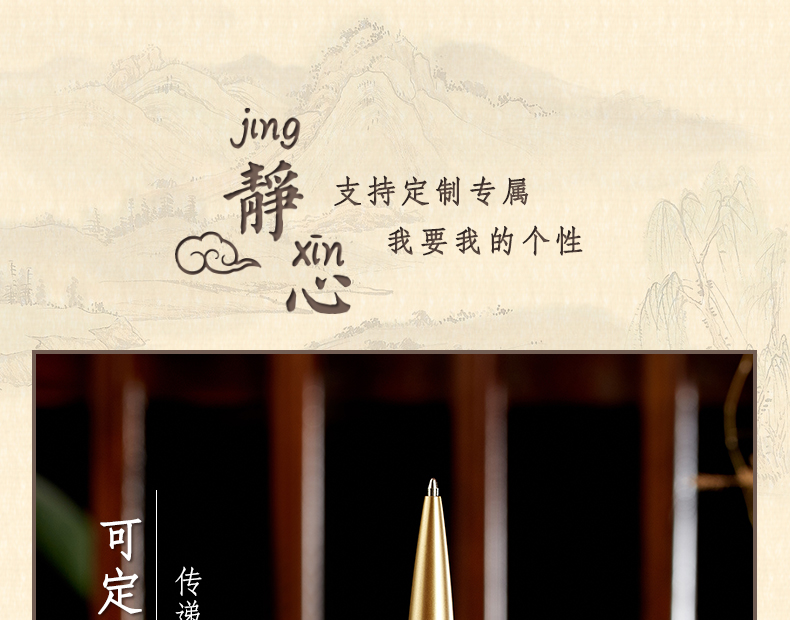 jing
靜
xīn
心
支持定制专属
我要我的个性
可定
传递